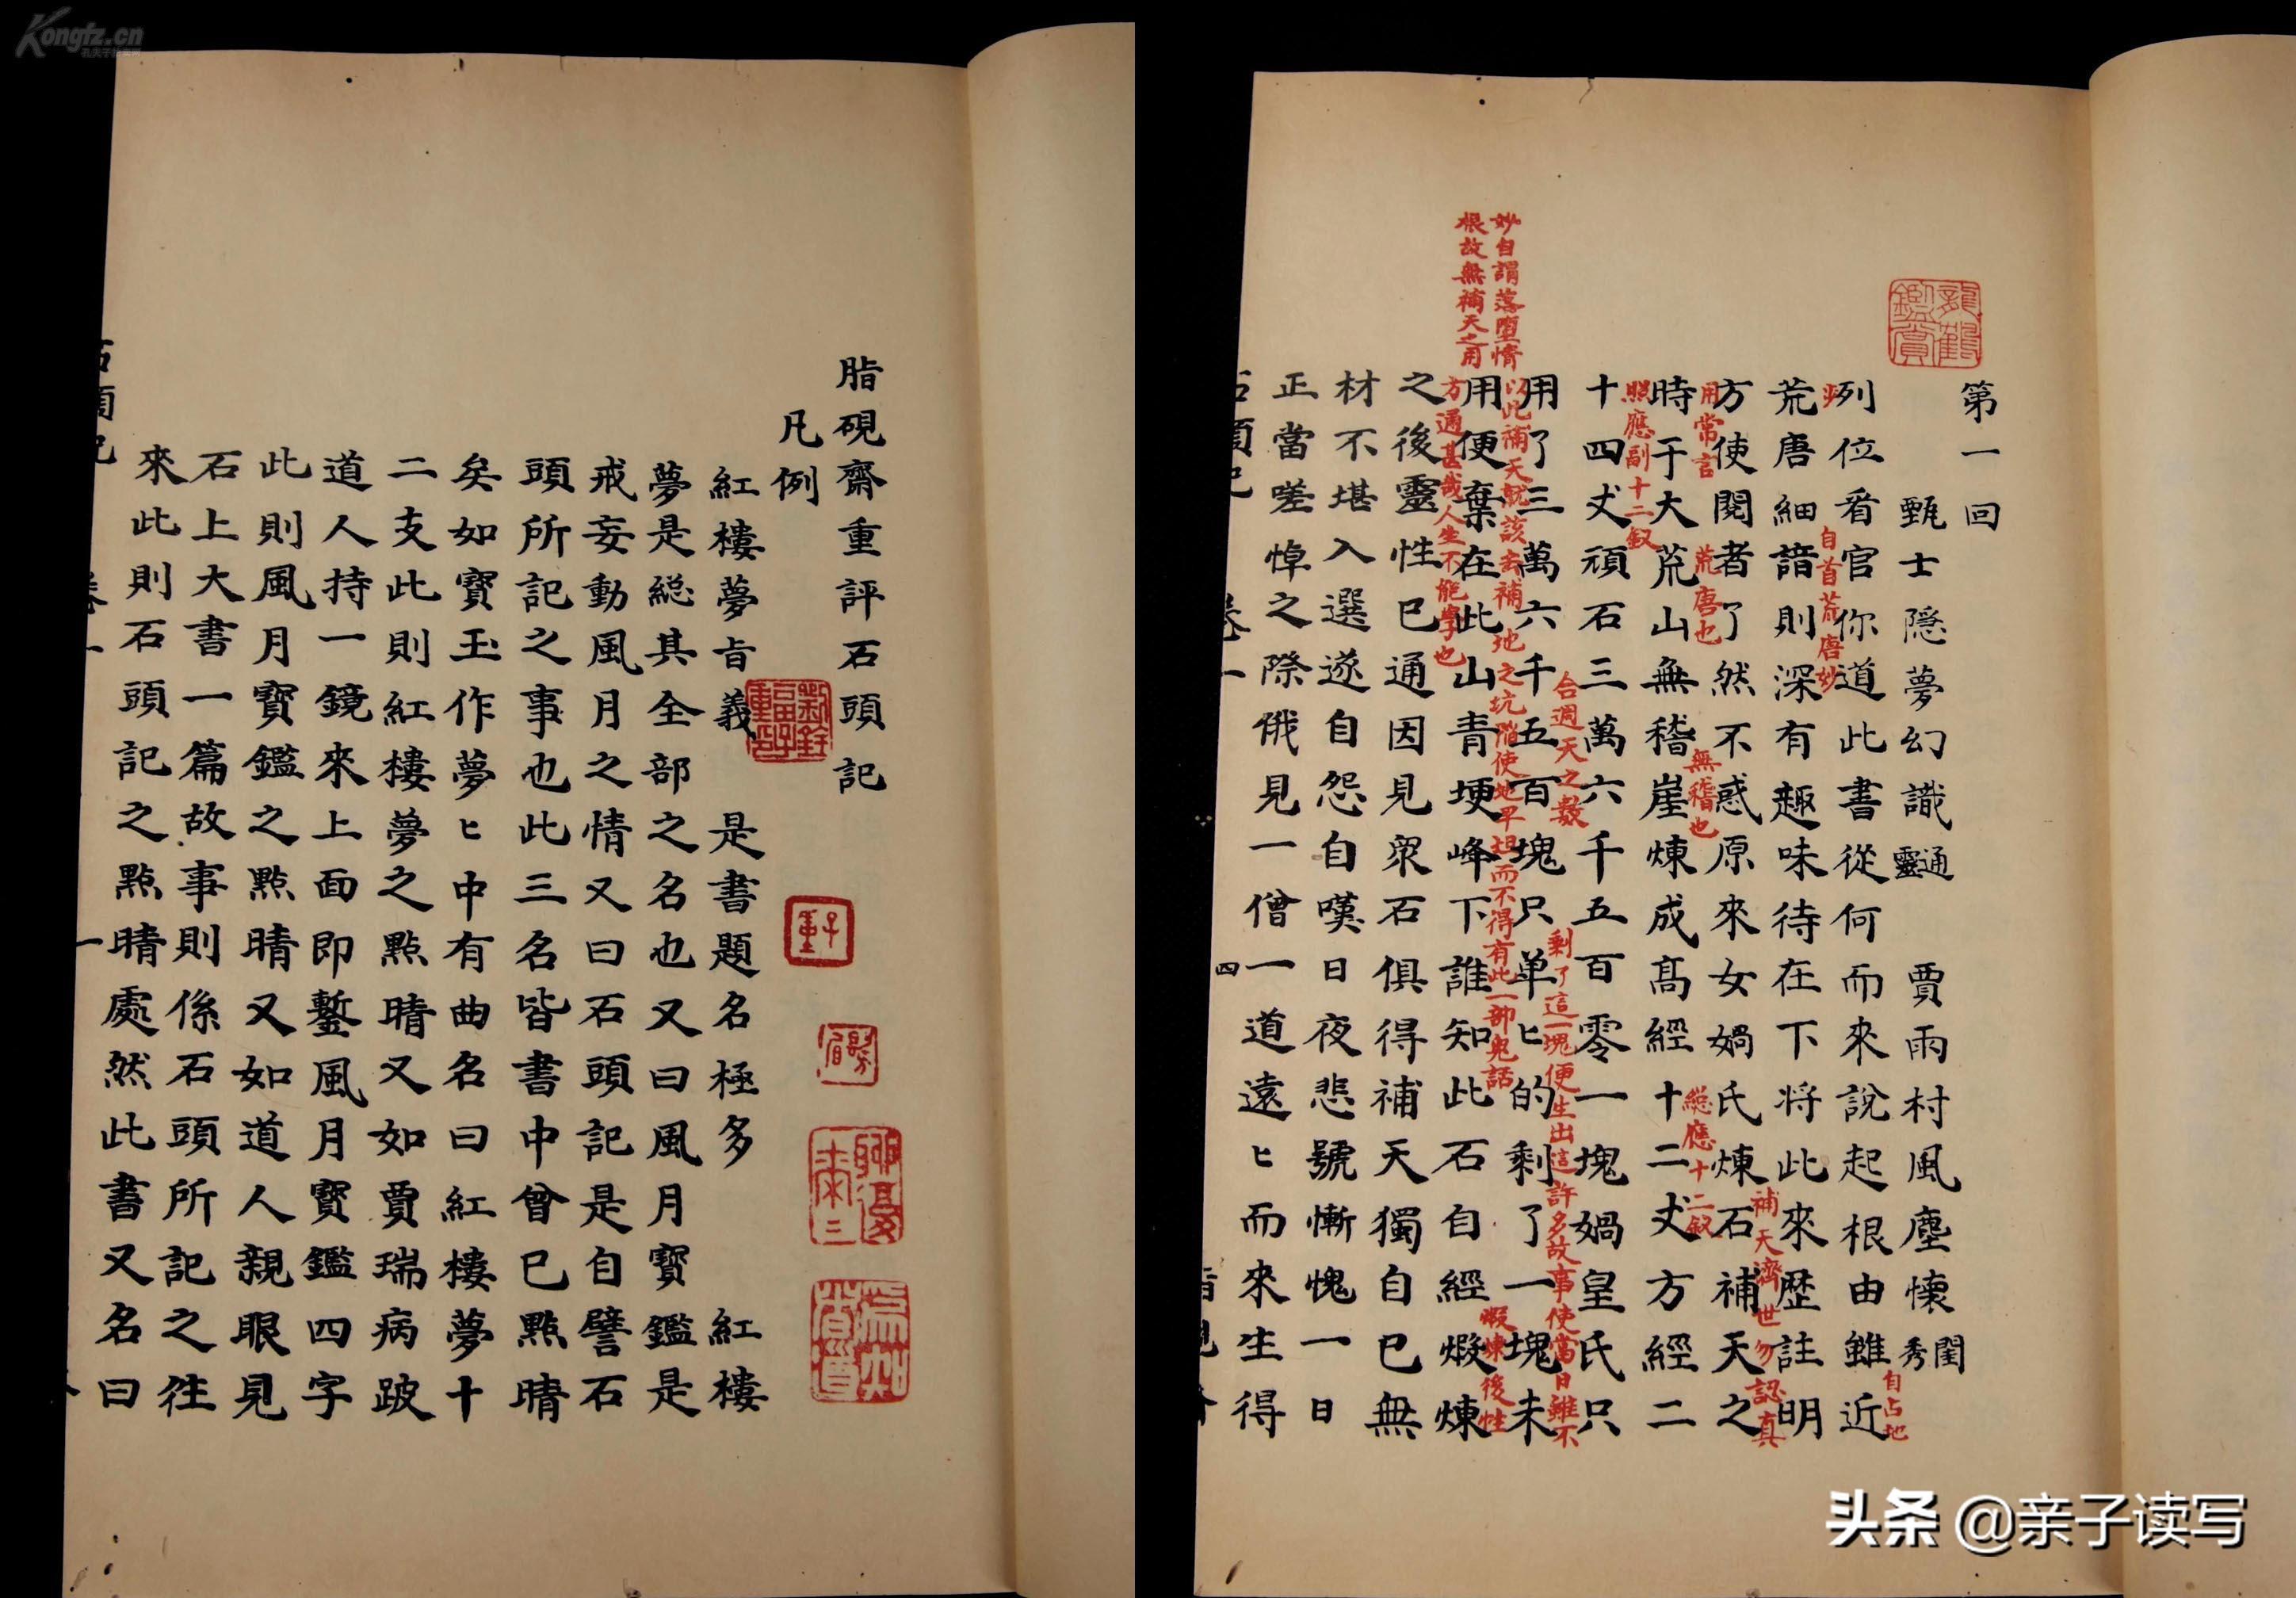 Kongfz.cn
脂硯齋重評石頭記
凡例
紅樓夢旨義 是書題名極多 紅樓
夢是総其全部之名也又曰風月寳鑑是
戒妄動風月之情又曰石頭記是自譬石
頭所記之事也此三名皆書中曾已點晴
矣如寳玉作夢ヒ中有曲名曰紅樓夢十
二支此則紅樓夢之點晴又如賈瑞病跛
道人持一鏡來上面即鏨風月寳鑑四字
此則風月寳鑑之點晴又如道人親眼見
石上大書一篇故事則係石頭所記之徃
來此則石頭記之點晴處然此書又名曰
石頭記 卷一 一
第一回
甄士隱夢幻識通靈 賈雨村風塵懷閨秀
列位看官你道此書從何而來說起根由雖近
自占地
自首荒唐妙
荒唐細諳則深有趣味待在下將此來歷註明
方使閱者了然不惑原來女媧氏煉石補天之
補天濟世勿認真
用常言
時于大荒山無稽崖煉成高經十二丈方經二
荒唐也
無稽也
総應十二釵
照應副十二釵
十四丈頑石三萬六千五百零一塊媧皇氏只
合週天之數
用了三萬六千五百塊只单ヒ的剩了一塊未
剩了這一塊便生出這許多故事使當日雖不
以此補天就該去補地之坑陷使地平坦而不得有此一部鬼話
用便棄在此山青埂峰下誰知此石自經煅煉
煅煉後性
方通甚哉人生不能學也
妙自謂落墮情
根故無補天之用
之後靈性已通因見衆石俱得補天獨自己無
材不堪入選遂自怨自嘆日夜悲號慚愧一日
正當嗟悼之際俄見一僧一道遠ヒ而來生得
石頭記 卷一 四
龍鶴鑑賞
头条 @亲子读写